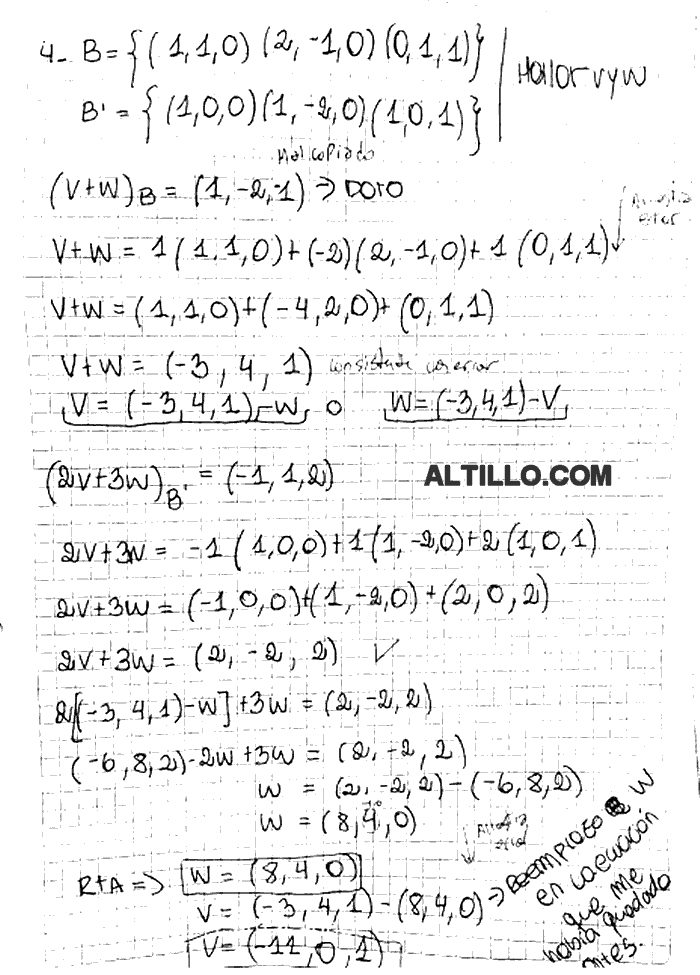 4- B = {(1,1,0) (2,-1,0) (0,1,1)} | Hallar v y w
B' = {(1,0,0) (1,-2,0) (1,0,1)}
Mal copiado
(V+W)B = (1,-2,-1) → DATO
V+W = 1(1,1,0)+(-2)(2,-1,0)+1(0,1,1)
V+W = (1,1,0)+(-4,2,0)+(0,1,1)
V+W = (-3, 4, 1)
V = (-3,4,1)-W o W=(-3,4,1)-V
(2V+3W)B' = (-1,1,2)
ALTILLO.COM
2V+3W = -1(1,0,0)+1(1,-2,0)+2(1,0,1)
2V+3W = (-1,0,0)+(1,-2,0)+(2,0,2)
2V+3W = (2, -2, 2) ✓
2[(-3,4,1)-W]+3W = (2,-2,2)
(-6,8,2)-2W+3W = (2,-2,2)
W = (2,-2,2)-(-6,8,2)
W = (8,4,0)
RTA => W = (8,4,0)
V = (-3,4,1)-(8,4,0) → Reemplazo W
en la ecuación
que me
había quedado
antes.
V=(-11,0,1)